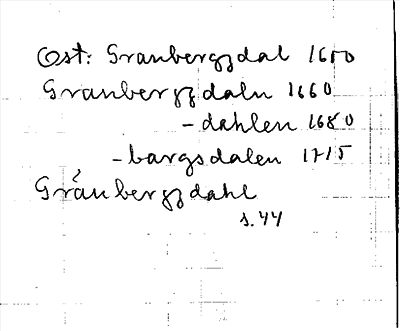 Öst: Granbergzdal 1650
Granbergzdaln 1660
- dahlen 1680
- bargsdalen 1715
Grånbergzdahl
s. 44